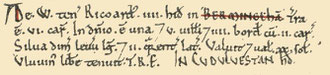 De .W. ten Ricoard .IIII. hid in BERMINGEHĀ. Tra
ē .VI. car. In dnio .ē una. 7 v. uilli 7 IIII. bord cū .II. car.
Silua dim leuu lg. 7 II. qrent lat. Valuit 7 ual .xx. sol.
Vluuin libe tenuit T.R.E. IN CUDULVESTAN HD.